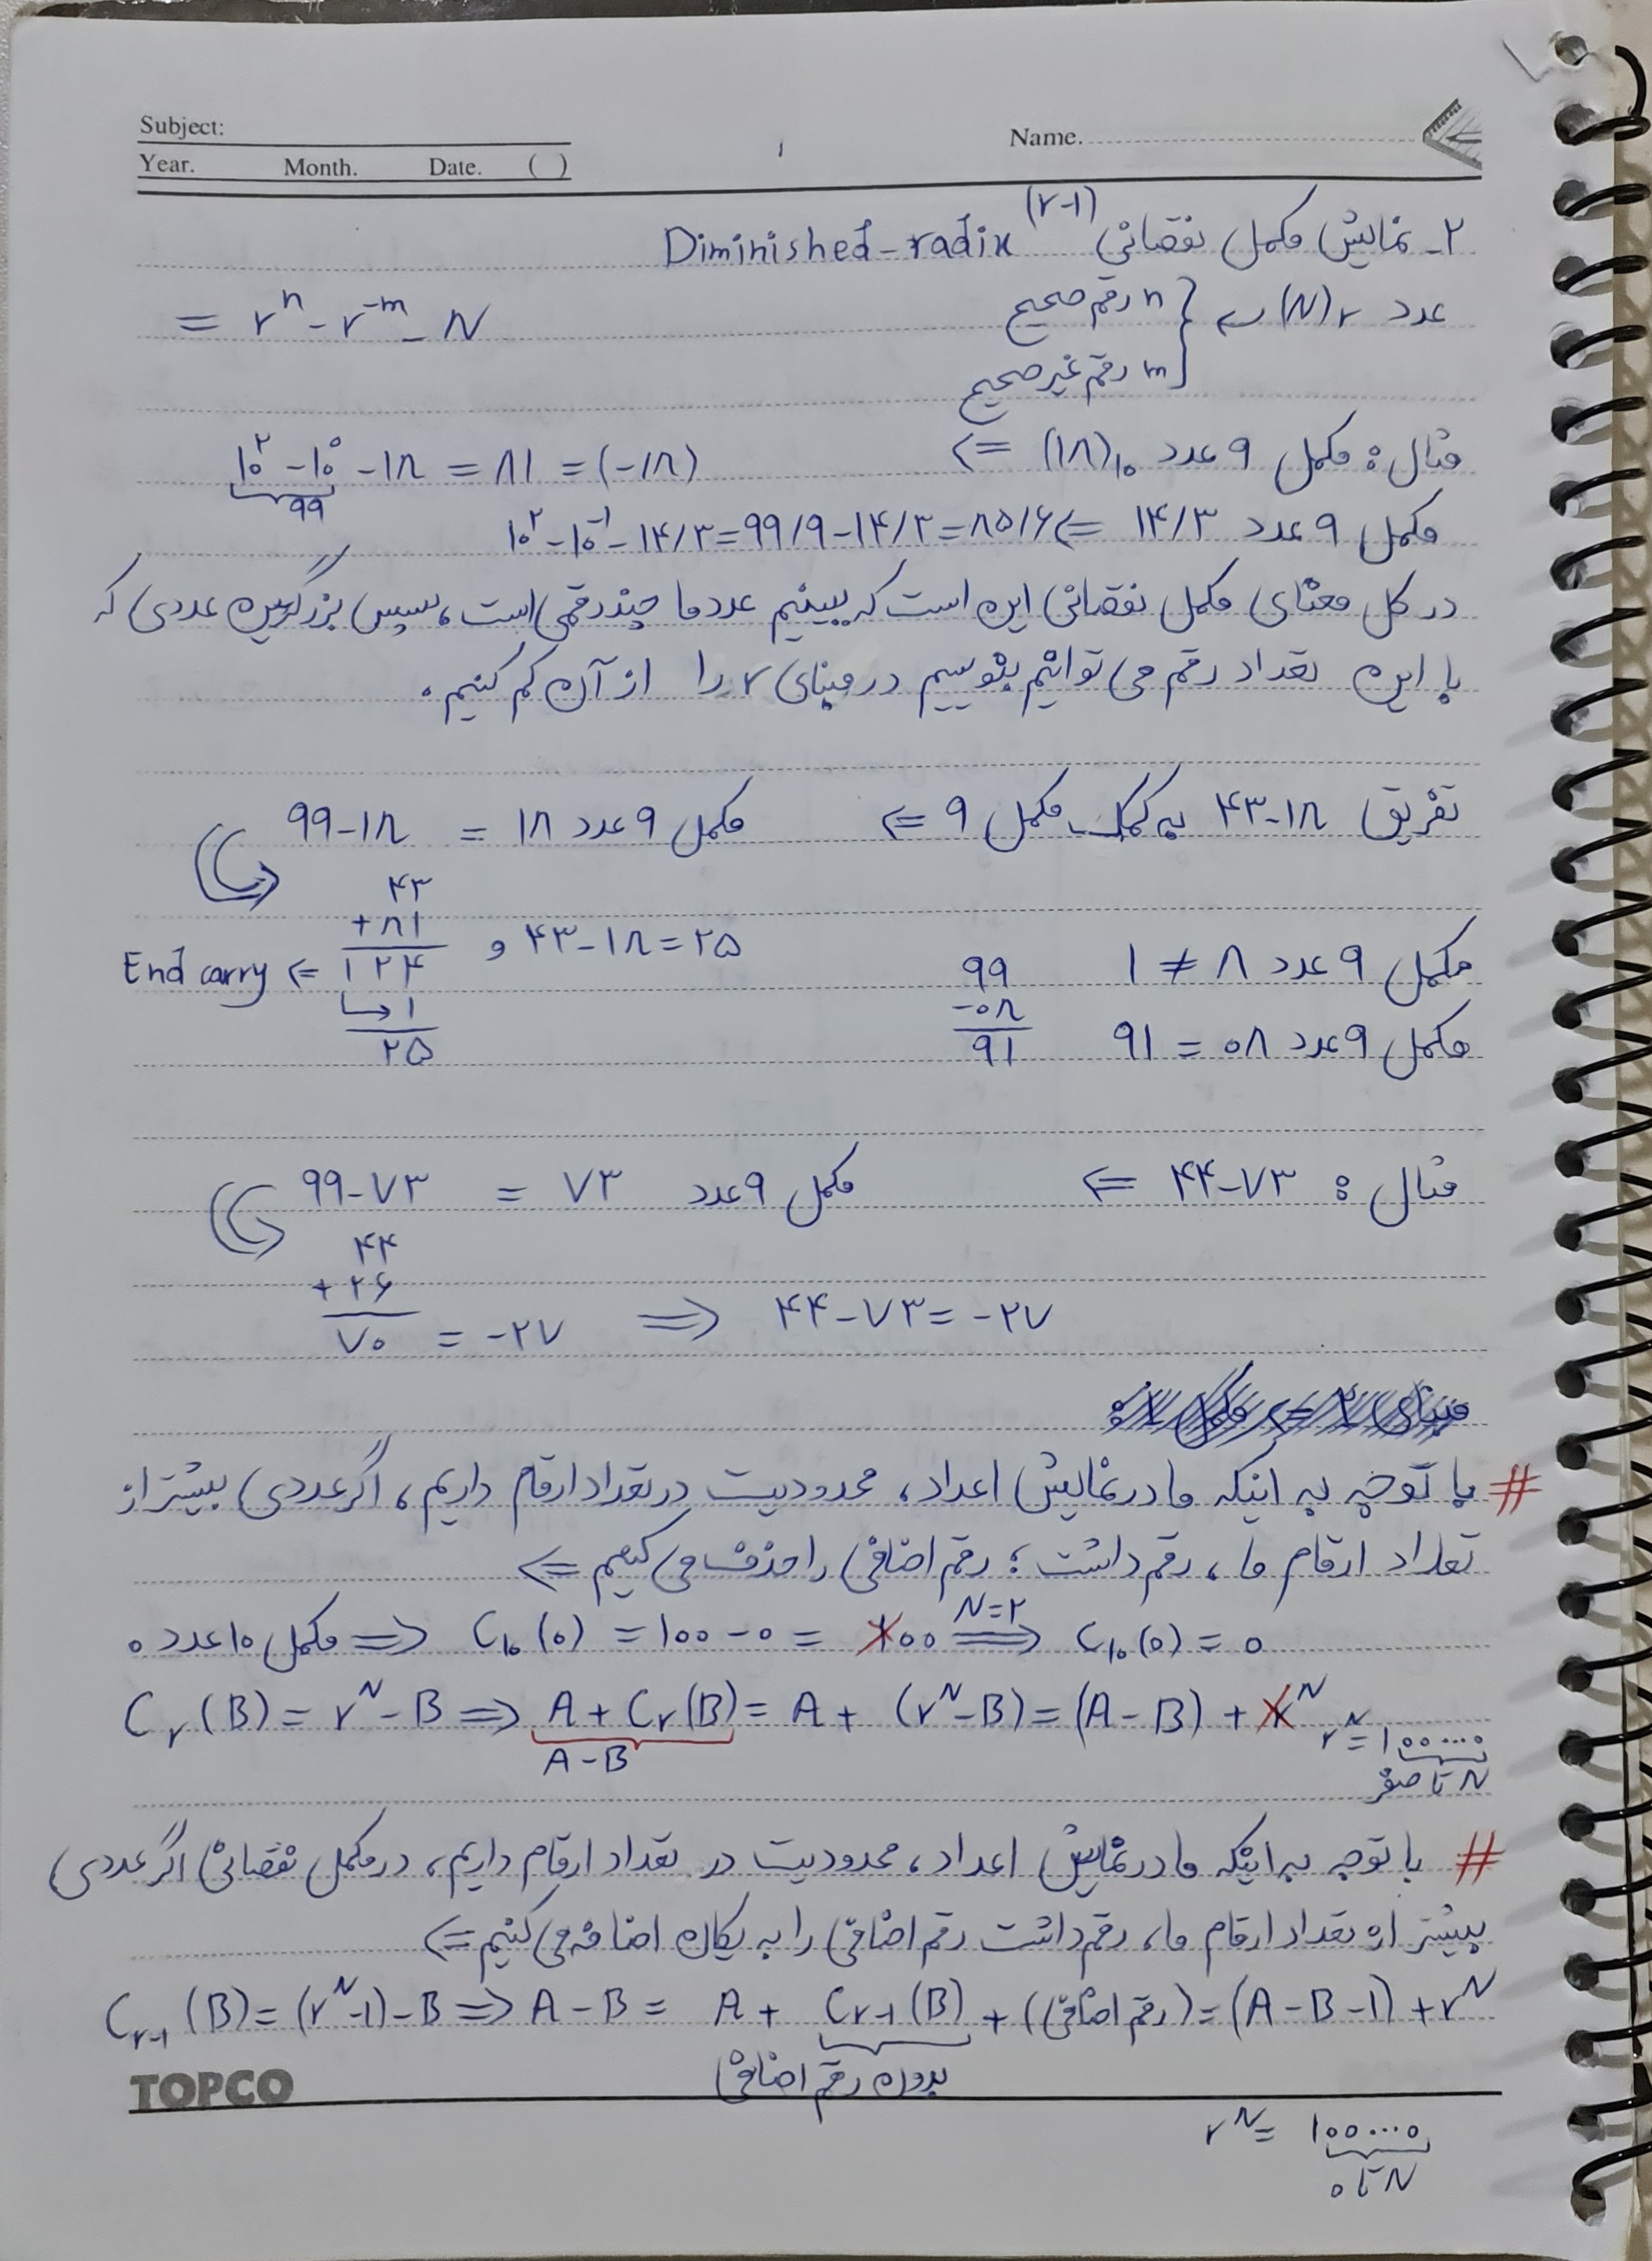 Subject:
Name.
Year. Month. Date. ( )
۲- نمایش مکمل نقصانی (r-1) Diminished-radix
عدد (N)r => { n رقم صحیح = r^n - r^-m - N
m رقم غیر صحیح
مثال: مکمل 9 عدد (۱۸)۱۰ => ۱۰^۲ - ۱۰^۰ - ۱۸ = ۸۱ = (-۱۸)
99
مکمل 9 عدد ۱۴/۳ => ۱۰^۲ - ۱۰^-۱ - ۱۴/۳ = ۹۹/۹ - ۱۴/۳ = ۸۵/۶
در کل معنای مکمل نقصانی این است که ببینیم عدد ما چند رقمی است، سپس بزرگترین عددی که
با این تعداد رقم می توانیم بنویسیم در مبنای r را از آن کم کنیم.
تفریق ۴۳-۱۸ به کمک مکمل 9 => مکمل 9 عدد ۱۸ = ۹۹-۱۸
۴۳
+۸۱
End carry <= ۱۲۴ و ۴۳-۱۸=۲۵
۱
۲۵
مکمل 9 عدد ۸ ≠ ۱
99
-۰۸
91
مکمل 9 عدد ۰۸ = 91
مثال: ۴۴-۷۳ => مکمل 9 عدد ۷۳ = ۹۹-۷۳
۴۴
+۲۶
۷۰ = -۲۷ => ۴۴-۷۳=-۲۷
# با توجه به اینکه ما در نمایش اعداد، محدودیت در تعداد ارقام داریم، اگر عددی بیشتر از
تعداد ارقام ما، رقم داشت؛ رقم اضافی را حذف می کنیم =>
مکمل ۱۰ عدد ۰ => C۱۰(۰) = ۱۰۰-۰ = ۱۰۰ =N=۲=> C۱۰(۰) = ۰
Cr(B) = r^N - B => A + Cr(B) = A + (r^N - B) = (A - B) + r^N r^N = ۱۰۰....۰
A-B
N تا صفر
# با توجه به اینکه ما در نمایش اعداد، محدودیت در تعداد ارقام داریم، در مکمل نقصانی اگر عددی
بیشتر از تعداد ارقام ما، رقم داشت رقم اضافی را به یکان اضافه می کنیم =>
Cr-1(B) = (r^N-1) - B => A - B = A + Cr-1(B) + (رقم اضافی) = (A - B - 1) + r^N
بدون رقم اضافی
TOPCO
r^N = ۱۰۰...۰
N تا ۰